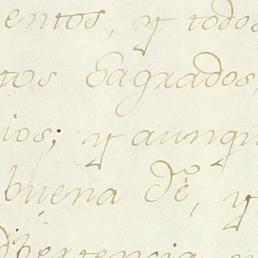 entos, y todos
tos Sagrados,
ios; y aunqu
buena de, y